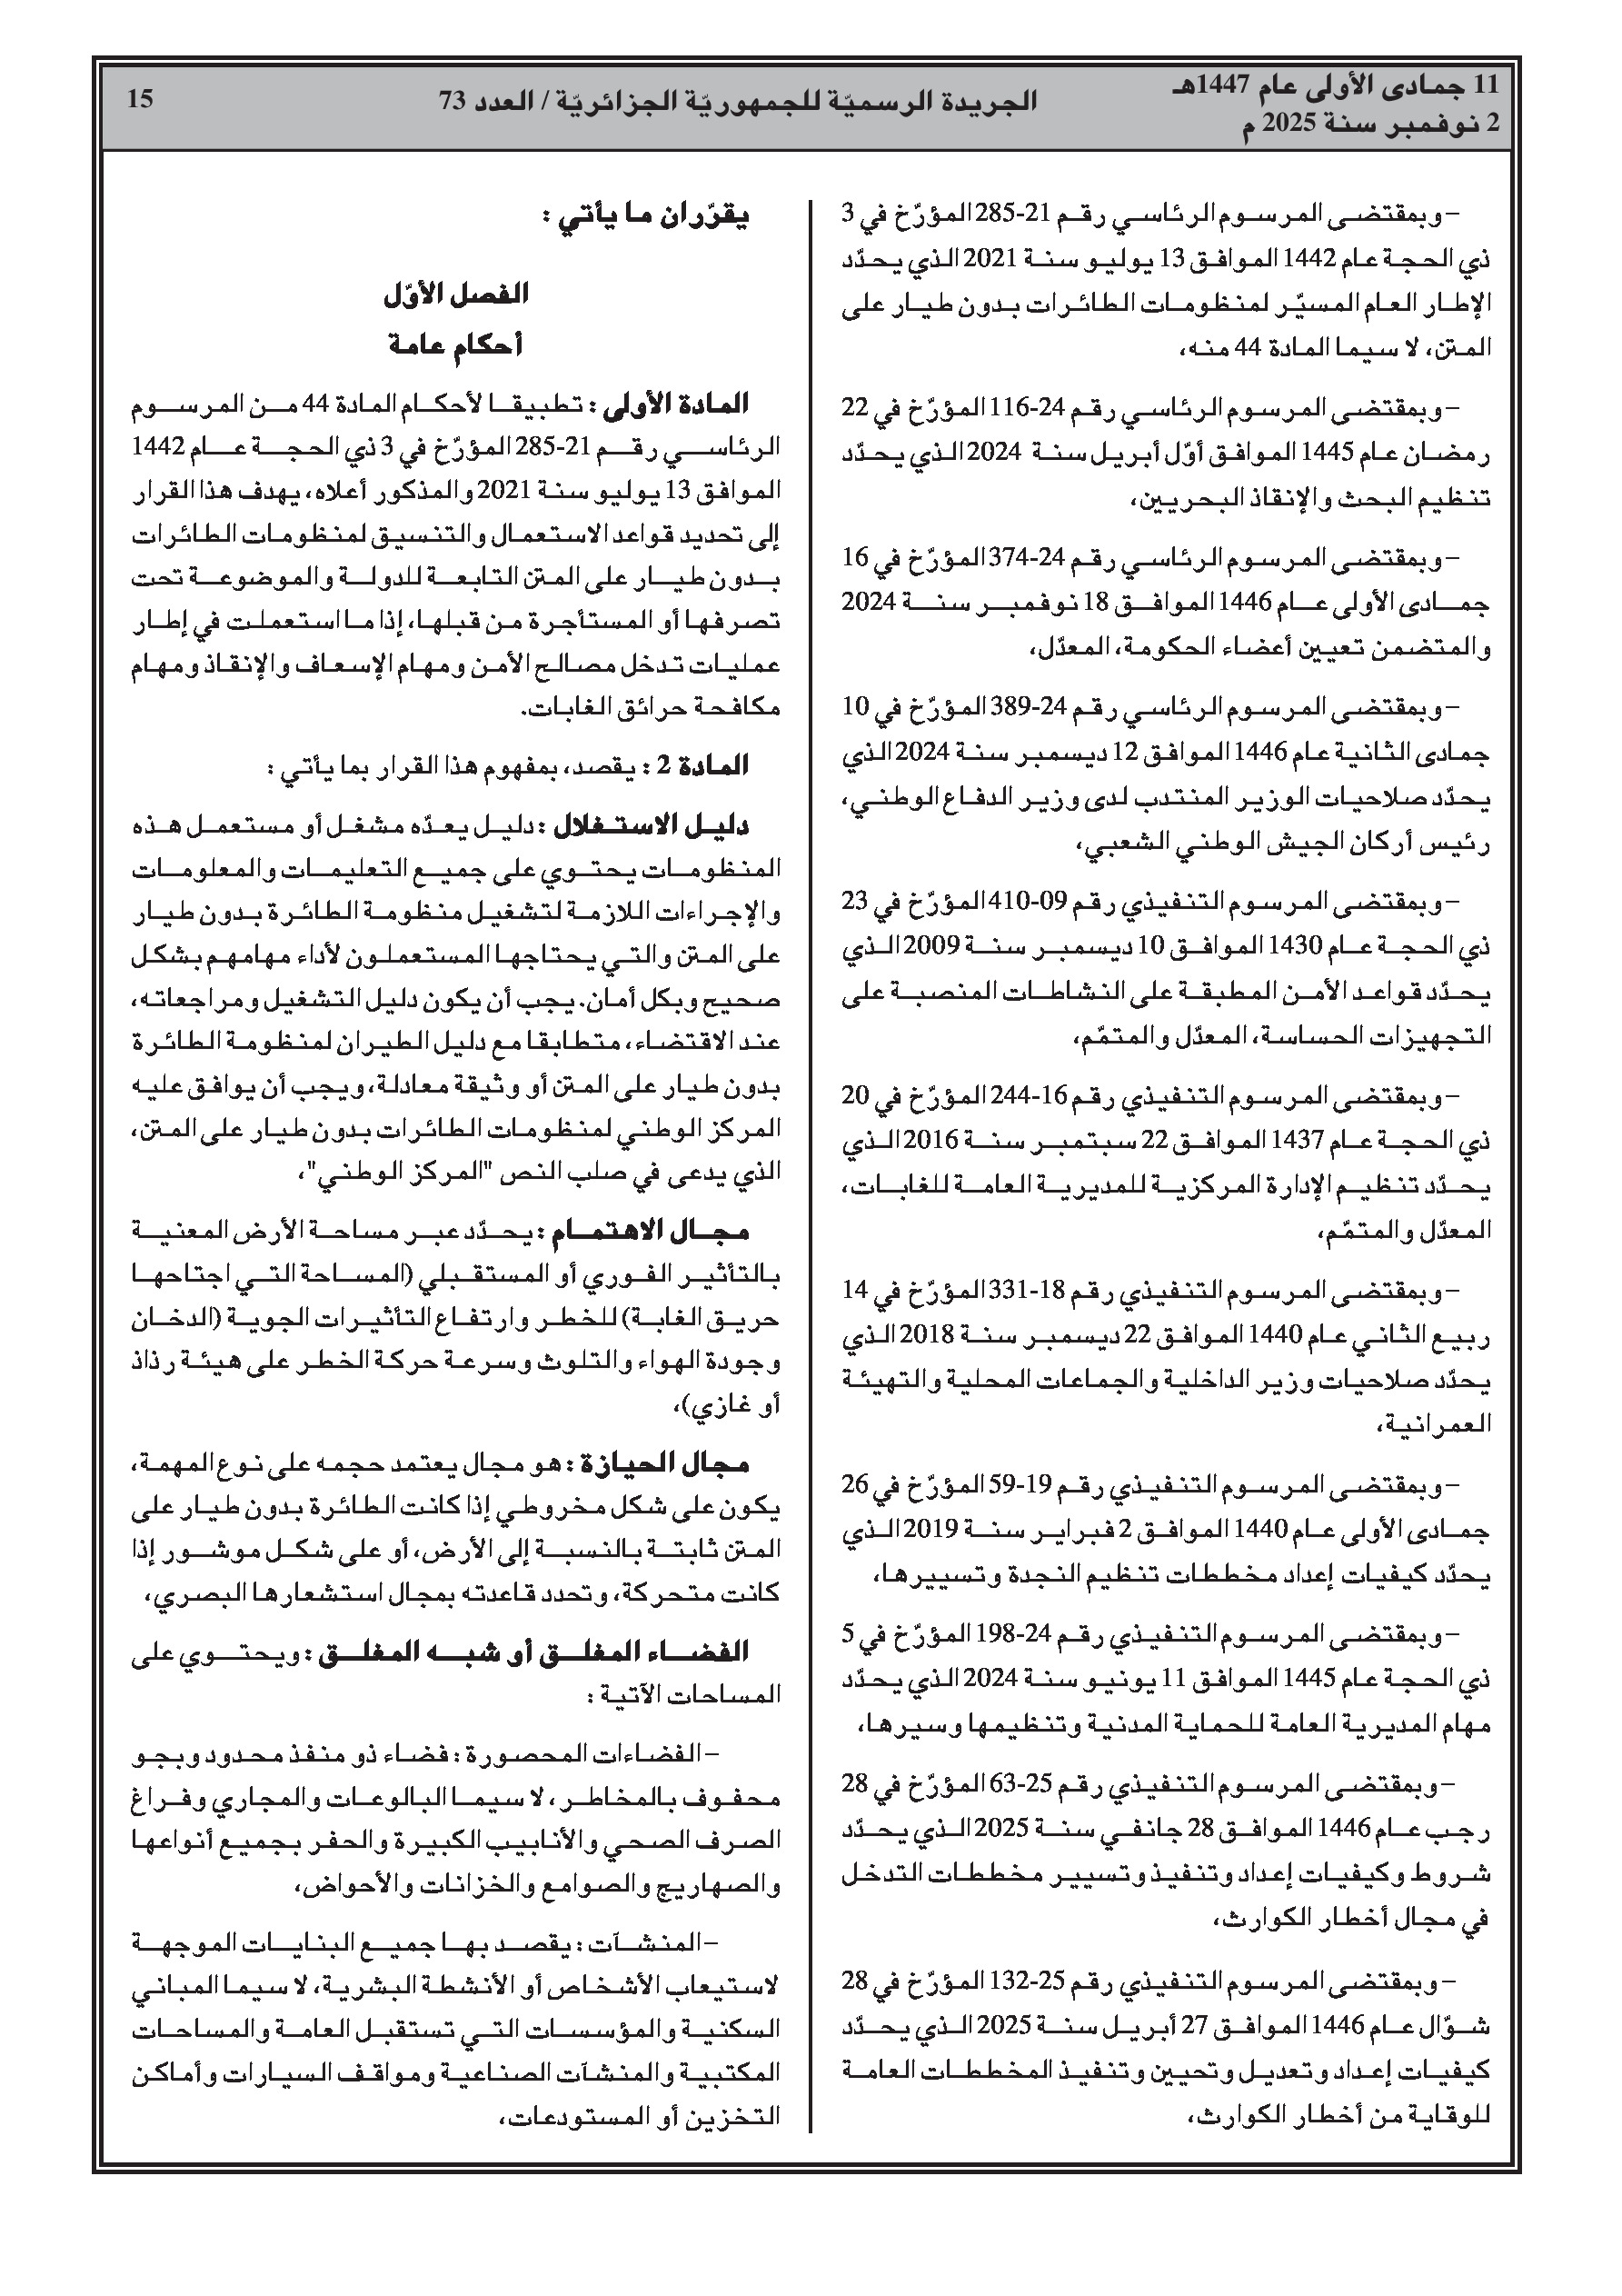 11 جمادى الأولى عام 1447هـ
2 نوفمبر سنة 2025 م
الجريدة الرسميّة للجمهوريّة الجزائريّة / العدد 73
15
– وبمقتضى المرسوم الرئاسي رقم 21-285 المؤرّخ في 3
ذي الحجة عام 1442 الموافق 13 يوليو سنة 2021 الذي يحدّد
الإطار العام المسيّر لمنظومات الطائرات بدون طيار على
المتن، لا سيما المادة 44 منه،
– وبمقتضى المرسوم الرئاسي رقم 24-116 المؤرّخ في 22
رمضان عام 1445 الموافق أوّل أبريل سنة 2024 الذي يحدّد
تنظيم البحث والإنقاذ البحريين،
– وبمقتضى المرسوم الرئاسي رقم 24-374 المؤرّخ في 16
جمادى الأولى عام 1446 الموافق 18 نوفمبر سنة 2024
والمتضمن تعيين أعضاء الحكومة، المعدّل،
– وبمقتضى المرسوم الرئاسي رقم 24-389 المؤرّخ في 10
جمادى الثانية عام 1446 الموافق 12 ديسمبر سنة 2024 الذي
يحدّد صلاحيات الوزير المنتدب لدى وزير الدفاع الوطني،
رئيس أركان الجيش الوطني الشعبي،
– وبمقتضى المرسوم التنفيذي رقم 09-410 المؤرّخ في 23
ذي الحجة عام 1430 الموافق 10 ديسمبر سنة 2009 الذي
يحدّد قواعد الأمن المطبقة على النشاطات المنصبة على
التجهيزات الحساسة، المعدّل والمتمّم،
– وبمقتضى المرسوم التنفيذي رقم 16-244 المؤرّخ في 20
ذي الحجة عام 1437 الموافق 22 سبتمبر سنة 2016 الذي
يحدّد تنظيم الإدارة المركزية للمديرية العامة للغابات،
المعدّل والمتمّم،
– وبمقتضى المرسوم التنفيذي رقم 18-331 المؤرّخ في 14
ربيع الثاني عام 1440 الموافق 22 ديسمبر سنة 2018 الذي
يحدّد صلاحيات وزير الداخلية والجماعات المحلية والتهيئة
العمرانية،
– وبمقتضى المرسوم التنفيذي رقم 19-59 المؤرّخ في 26
جمادى الأولى عام 1440 الموافق 2 فبراير سنة 2019 الذي
يحدّد كيفيات إعداد مخططات تنظيم النجدة وتسييرها،
– وبمقتضى المرسوم التنفيذي رقم 24-198 المؤرّخ في 5
ذي الحجة عام 1445 الموافق 11 يونيو سنة 2024 الذي يحدّد
مهام المديرية العامة للحماية المدنية وتنظيمها وسيرها،
– وبمقتضى المرسوم التنفيذي رقم 25-63 المؤرّخ في 28
رجب عام 1446 الموافق 28 جانفي سنة 2025 الذي يحدّد
شروط وكيفيات إعداد وتنفيذ وتسيير مخططات التدخل
في مجال أخطار الكوارث،
– وبمقتضى المرسوم التنفيذي رقم 25-132 المؤرّخ في 28
شوّال عام 1446 الموافق 27 أبريل سنة 2025 الذي يحدّد
كيفيات إعداد وتعديل وتحيين وتنفيذ المخططات العامة
للوقاية من أخطار الكوارث،
يقرّران ما يأتي :
الفصل الأوّل
أحكام عامة
المادة الأولى : تطبيقا لأحكام المادة 44 من المرسوم
الرئاسي رقم 21-285 المؤرّخ في 3 ذي الحجة عام 1442
الموافق 13 يوليو سنة 2021 والمذكور أعلاه، يهدف هذا القرار
إلى تحديد قواعد الاستعمال والتنسيق لمنظومات الطائرات
بدون طيار على المتن التابعة للدولة والموضوعة تحت
تصرفها أو المستأجرة من قبلها، إذا ما استعملت في إطار
عمليات تدخل مصالح الأمن ومهام الإسعاف والإنقاذ ومهام
مكافحة حرائق الغابات.
المادة 2 : يقصد، بمفهوم هذا القرار بما يأتي :
دليل الاستغلال : دليل يعدّه مشغل أو مستعمل هذه
المنظومات يحتوي على جميع التعليمات والمعلومات
والإجراءات اللازمة لتشغيل منظومة الطائرة بدون طيار
على المتن والتي يحتاجها المستعملون لأداء مهامهم بشكل
صحيح وبكل أمان. يجب أن يكون دليل التشغيل ومراجعاته،
عند الاقتضاء، متطابقا مع دليل الطيران لمنظومة الطائرة
بدون طيار على المتن أو وثيقة معادلة، ويجب أن يوافق عليه
المركز الوطني لمنظومات الطائرات بدون طيار على المتن،
الذي يدعى في صلب النص "المركز الوطني"،
مجال الاهتمام : يحدّد عبر مساحة الأرض المعنية
بالتأثير الفوري أو المستقبلي (المساحة التي اجتاحها
حريق الغابة) للخطر وارتفاع التأثيرات الجوية (الدخان
وجودة الهواء والتلوث وسرعة حركة الخطر على هيئة رذاذ
أو غازي)،
مجال الحيازة : هو مجال يعتمد حجمه على نوع المهمة،
يكون على شكل مخروطي إذا كانت الطائرة بدون طيار على
المتن ثابتة بالنسبة إلى الأرض، أو على شكل موشور إذا
كانت متحركة، وتحدد قاعدته بمجال استشعارها البصري،
الفضاء المغلق أو شبه المغلق : ويحتوي على
المساحات الآتية :
– الفضاءات المحصورة : فضاء ذو منفذ محدود وبجو
محفوف بالمخاطر، لا سيما البالوعات والمجاري وفراغ
الصرف الصحي والأنابيب الكبيرة والحفر بجميع أنواعها
والصهاريج والصوامع والخزانات والأحواض،
– المنشآت : يقصد بها جميع البنايات الموجهة
لاستيعاب الأشخاص أو الأنشطة البشرية، لا سيما المباني
السكنية والمؤسسات التي تستقبل العامة والمساحات
المكتبية والمنشآت الصناعية ومواقف السيارات وأماكن
التخزين أو المستودعات،